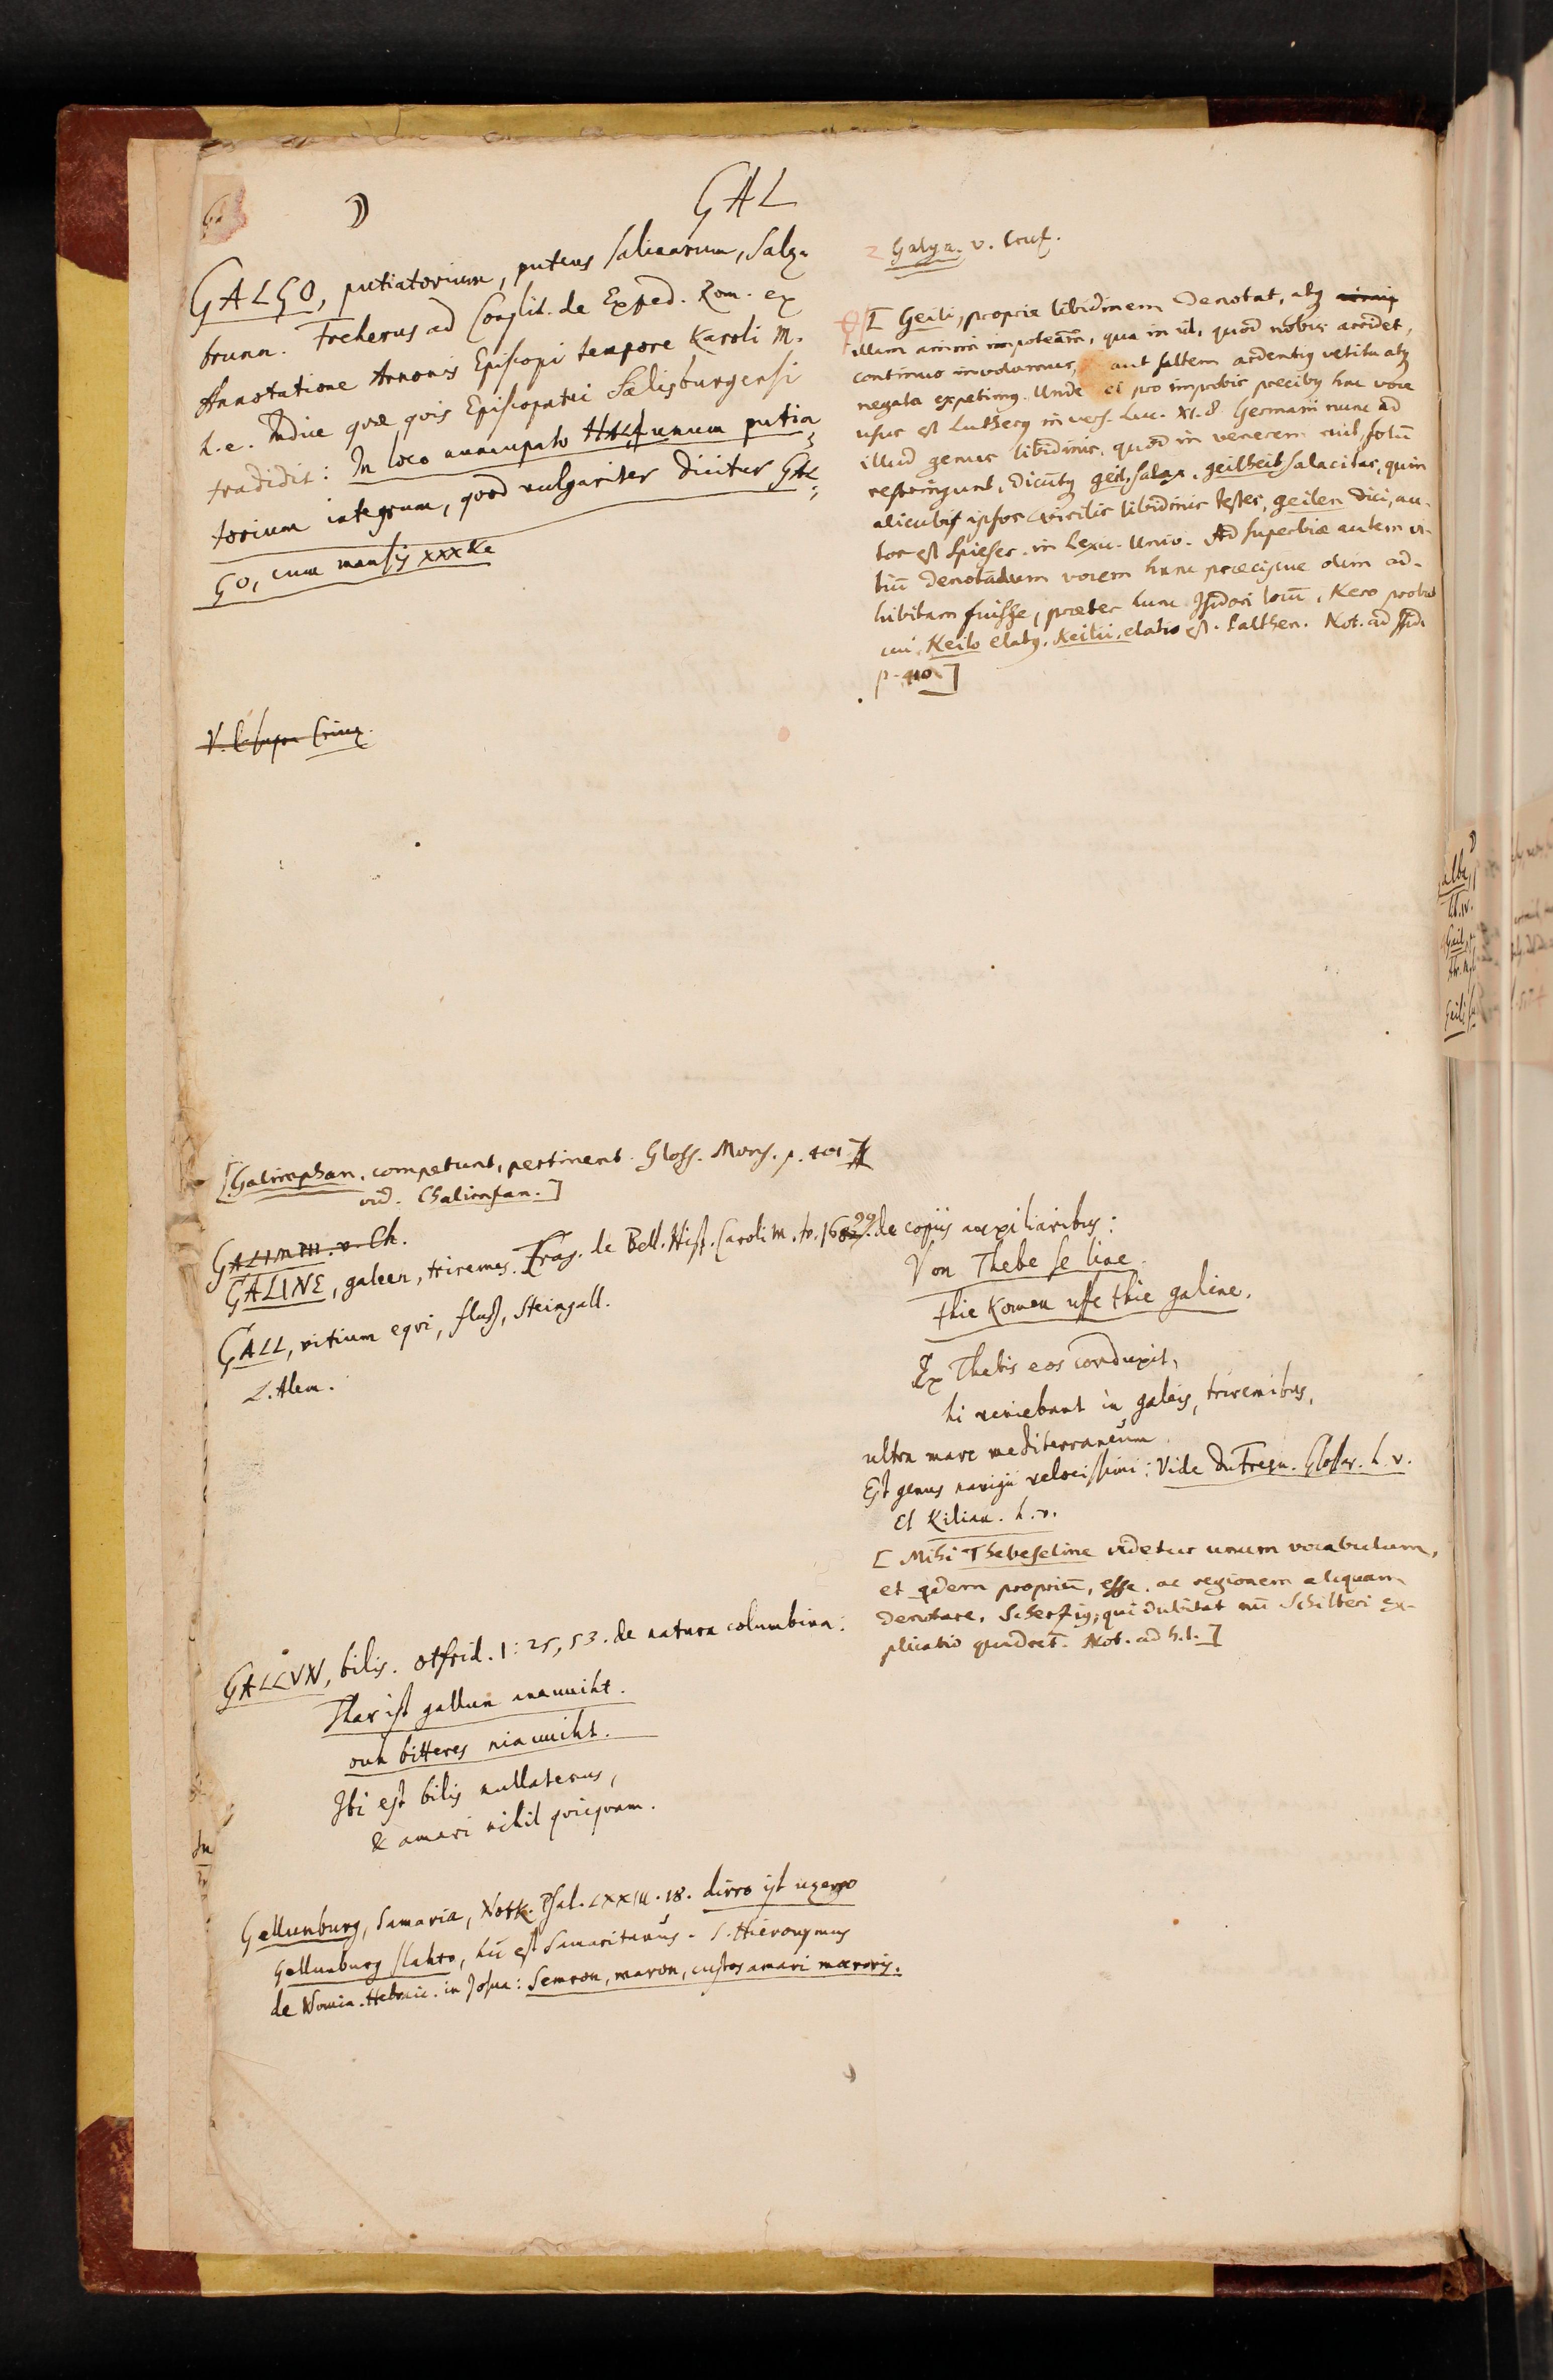 GAL
GALGO, putiatorium, puteus salinarum, Salz-
brunn. Freherus ad Constit. de Exped. Rom. ex
Annotatione Arnonis Episcopi tempore Karoli M.
h.e. Indice quæ quis Episcopatui Salisburgensi
tradidit: In loco nuncupato Hal unum putia
torium integrum, quod vulgariter dicitur GAL
GO, cum mansis xxx
V. supra
[Galimphan, competunt, pertinent. Gloss. Mons. p. 401
vid. Chalimfan.]
GALIMM. v. Ch.
GALINE, galeen, triremes. Frag. de Bell. Hisp. Caroli M. de copiis auxiliaribus:
GALL, vitium eqvi, fluss, Steingall.
L. Alem.
GALLVN, bilis. Otfrid. 1: 25, 53. de natura columbina:
Thar ist gallun anauuiht.
ouh bitteres niauuiht.
Ibi est bilis nullatenus,
& amari nihil qvicqvam.
Gellunburg, Samaria, Notk. Psal. LXXIII. 18. dirro ist uzero
Gellunburg slahto, hic est Samaritanus. S. Hieronymus
de Nomin. Hebraic. in Josua: Semron, maron, custos amari mæroris.
Galga. v. Cruz.
[ Geili, propria libidinem denotat, atq
illum animi impotentiam, qua in id, quod nobis arridet,
continuo involamus, aut saltem ardentius vetitu atq
negata expetimus. Unde et pro improbis precibus hac voce
usus est Lutherus in vers. Luc. XI. 8 Germani nunc ad
illud genus libidinis, quod in venerem ruit, solum
restringunt, dicuntq geil, salax, geilheit salacitas, quin
alicubi ipsos virilis libidinis testes, geilen dici, au-
tor est Spieser. in Lexic. Univ. Ad superbiæ autem vi-
tiū denotandum vocem hanc præcipue olim ad-
hibitam fuisse, præter hunc Isidori locū, Kero probat
cui, Keilo elatus, Keilii, elatio est. Palthen. Not. ad Isid.
p. 410]
Von Thebe se line
thie komen uffe thie galine.
Ex Thebis eos conduxit,
hi veniebant in galeis, triremibus,
ultra mare mediterraneum.
Est genus navigii velocissimi: Vide du Fresn. Glossar. h. v.
Et Kilian. h. v.
[ Mihi Thebeseline videtur unum vocabulum,
et qdem propriū, esse, ac regionem aliquam
denotare. Scherzig, qui dubitat nū Schilteri ex-
plicatio quadret. Not. ad h.l. ]